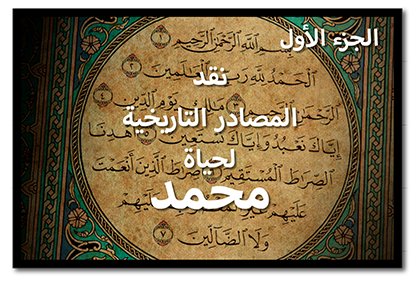 الجزء الأول
نقد
المصادر التاريخية
لحياة
محمد
بِسْمِ اللَّهِ الرَّحْمَٰنِ الرَّحِيمِ ١
الْحَمْدُ لِلَّهِ رَبِّ الْعَالَمِينَ ٢
الرَّحْمَٰنِ ٣ مَالِكِ يَوْمِ الدِّينِ ٤
إِيَّاكَ نَعْبُدُ وَإِيَّاكَ نَسْتَعِينُ ٥ اهْدِنَا
الصِّرَاطَ الْمُسْتَقِيمَ ٦ صِرَاطَ الَّذِينَ أَنْعَمْتَ
عَلَيْهِمْ غَيْرِ عَلَيْهِمْ
وَلَا الضَّالِّينَ ٧